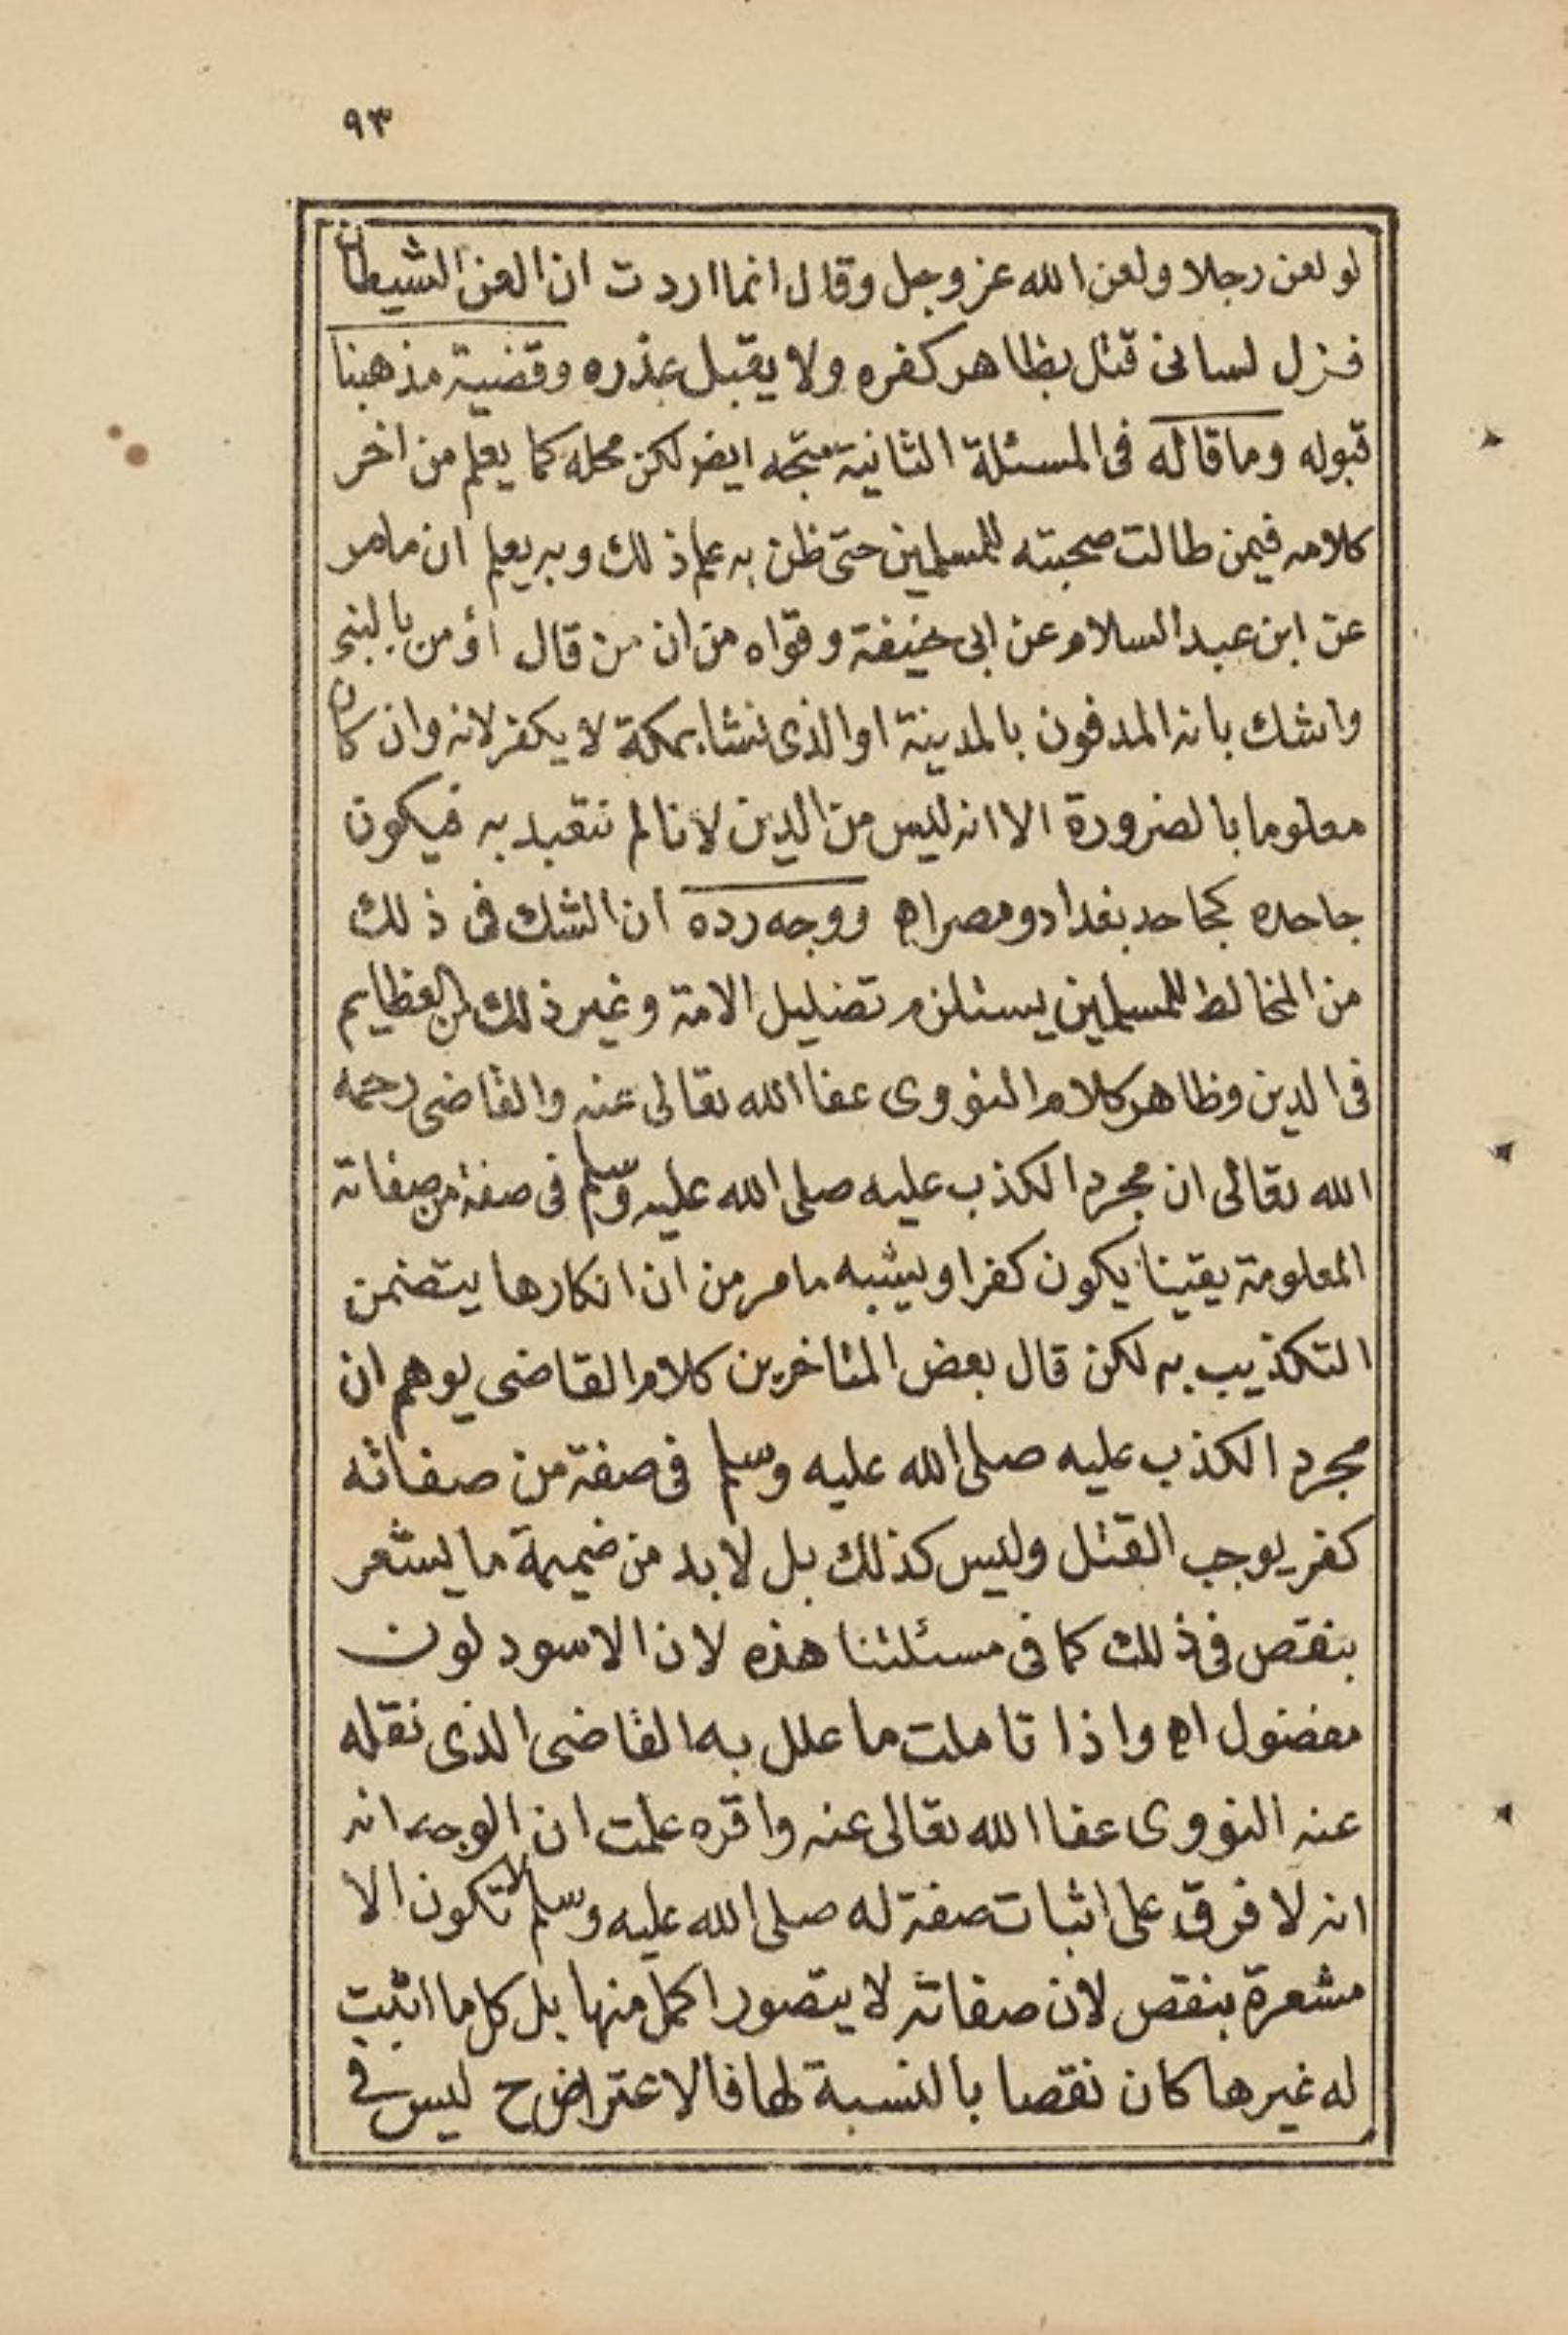 ٩٣
لو لعن رجلا ولعن الله عز وجل وقال انما اردت ان العن الشيطان
فزل لسانى قتل بظاهر كفره ولا يقبل عذره وقضية مذهبنا
قبوله وما قاله فى المسئلة الثانية متجه ايض لكن محله كما يعلم من اخر
كلامه فيمن طالت صحبته للمسلمين حتى ظن به علم ذلك وبه يعلم ان مامر
عن ابن عبد السلام عن ابى حنيفة وقواه من ان من قال اؤمن بالنبى
واشك بانه المدفون بالمدينة او الذى نشا بمكة لا يكفر لانه وان كان
معلوما بالضرورة الا انه ليس من الدين لانا لم نتعبد به فيكون
جاحده كجاحد بغداد ومصر اه ووجه رده ان الشك فى ذلك
من المخالط للمسلمين يستلزم تضليل الامة وغير ذلك من العظايم
فى الدين وظاهر كلام النووى عفا الله تعالى عنه والقاضى رحمه
الله تعالى ان مجرد الكذب عليه صلى الله عليه وسلم فى صفة من صفاته
المعلومة يقينا يكون كفرا ويشبه مامر من ان انكارها يتضمن
التكذيب به لكن قال بعض المتاخرين كلام القاضى يوهم ان
مجرد الكذب عليه صلى الله عليه وسلم فى صفة من صفاته
كفر يوجب القتل وليس كذلك بل لا بد من ضميمة ما يشعر
بنقص فى ذلك كما فى مسئلتنا هذه لان الاسود لون
مفضول اه واذا تاملت ما علل به القاضى الذى نقله
عنه النووى عفا الله تعالى عنه واقره علمت ان الوجه انه
انه لا فرق على اثبات صفة له صلى الله عليه وسلم لا تكون الا
مشعرة بنقص لان صفاته لا يتصور اكمل منها بل كل ما اثبت
له غيرها كان نقصا بالنسبة لها فالاعتراض ح ليس فى